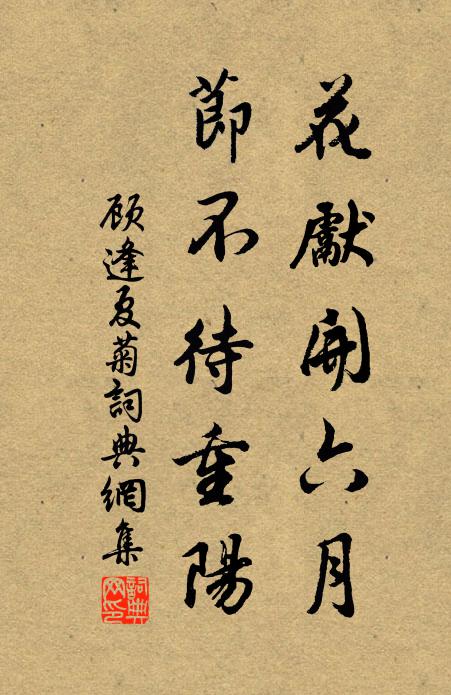 花獻開六月
節不待重陽
顾逢夏菊詞典網集
詞典網印